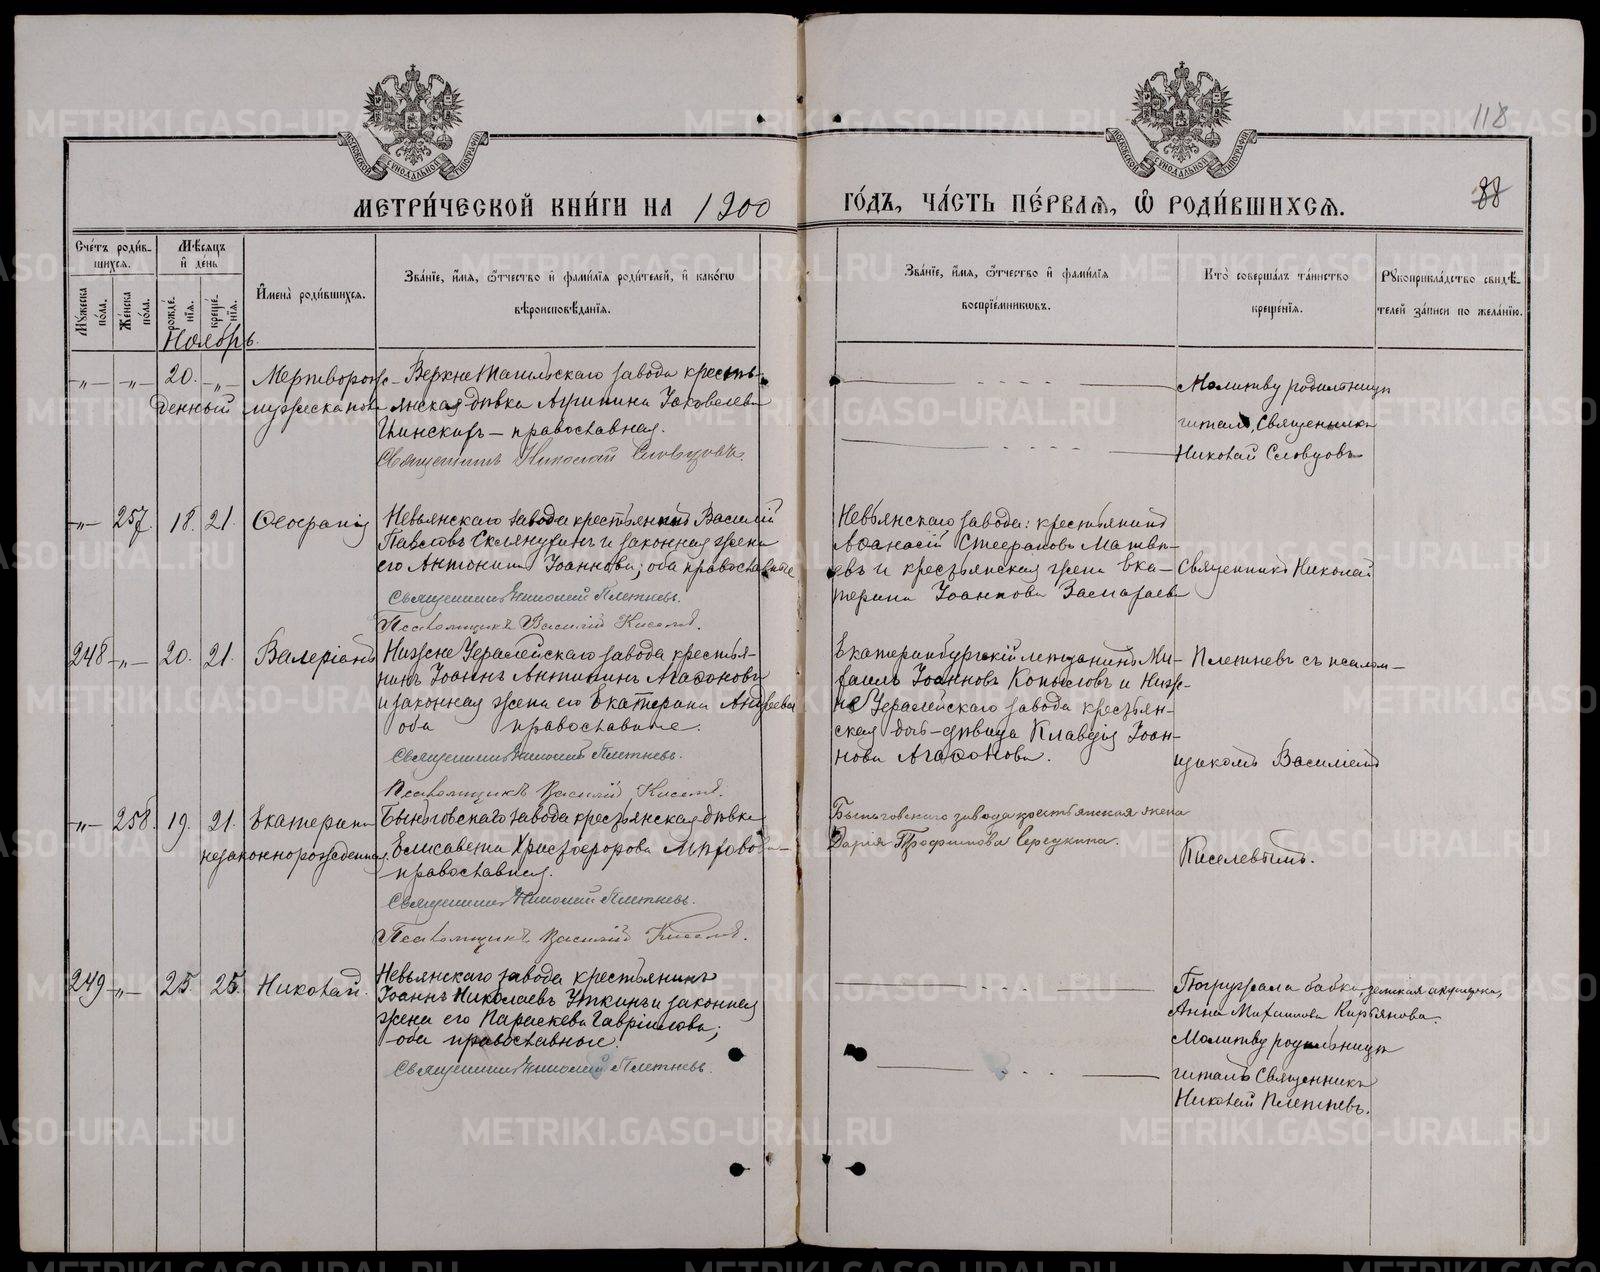 118
88
МОСКОВСКОЙ СѴНОДАЛЬНОЙ ТИПОГРАФІИ
МОСКОВСКОЙ СѴНОДАЛЬНОЙ ТИПОГРАФІИ
МЕТРИ́ЧЕСКОЙ КНИ́ГИ НА 1900
ГО́ДЪ, ЧА́СТЬ ПЕ́РВАѦ, Ѡ҆ РОДИ́ВШИХСѦ.
Сче́тъ роди́в-
шихсѧ.
Мꙋжеска по́ла.
Же́нска по́ла.
Мѣ́сѧцъ и҆ де́нь
рожде́нїѧ.
креще́нїѧ.
И҆мена̀ роди́вшихсѧ.
Зва́нїе, и҆́мѧ, ѻ҆́тчество и҆ фами́лїѧ роди́телей, и҆ како́гѡ
вѣроисповѣ́данїѧ.
Зва́нїе, и҆́мѧ, ѻ҆́тчество и҆ фами́лїѧ
воспрїе́мникѡвъ.
Кто̀ соверша́лъ та́инство
креще́нїѧ.
Рꙋкоприкла́дство свидѣ́-
телей за́писи по жела́нїю.
Ноябрь.
-„- -„- 20. -„- Мертворож-
денный мужеска пола
Верхне Тагильскаго завода кресть-
янская дѣвка Агрипина Іаковлева
православная.
Священникъ Николай Словцовъ.
Молитву родильницѣ
читалъ Священникъ
Николай Словцовъ
-„- 257. 18. 21. Ѳеофанія
Невьянскаго завода крестьянинъ Василій
Павловъ и законная жена
его Антонина Іоаннова; оба православные
Священникъ Николай Плетневъ.
Псаломщикъ Василій Киселевъ.
Невьянскаго завода: крестьянинъ
Аѳанасій Стефановъ Матвѣ-
евъ и крестьянская жена Ека-
терина Іоаннова
Священникъ Николай
248 -„- 20. 21. Валеріанъ
Нижне Уфалейскаго завода крестья-
нинъ Іоаннъ Антипинъ Агаѳоновъ
и законная жена его Екатерина Андреева
оба православные.
Священникъ Николай Плетневъ.
Псаломщикъ Василій Киселевъ.
Екатеринбургскій мѣщанинъ Ми-
хаилъ Іоанновъ Копыловъ и Ниж-
не Уфалейскаго завода крестьян-
ская дочь-дѣвица Клавдія Іоан-
нова Агаѳонова.
Плетневъ съ псалом-
щикомъ Василіемъ
-„- 258. 19. 21. Екатерина
незаконнорожденная.
Быньговскаго завода крестьянская дѣвка
Елисавета Христофорова
православная.
Священникъ Николай Плетневъ.
Псаломщикъ Василій Киселевъ.
Быньговскаго завода крестьянская жена
Дарія Трофимова Середкина.
Киселевымъ.
249 -„- 25. 25. Николай.
Невьянскаго завода крестьянинъ
Іоаннъ Николаевъ Уткинъ и законная
жена его Параскева Гавріилова;
оба православные.
Священникъ Николай Плетневъ.
Погружала бабка, земская акушерка,
Анна Михаилова Кирьянова.
Молитву родильницѣ
читалъ Священникъ
Николай Плетневъ.
METRIKI.GASO-URAL.RU